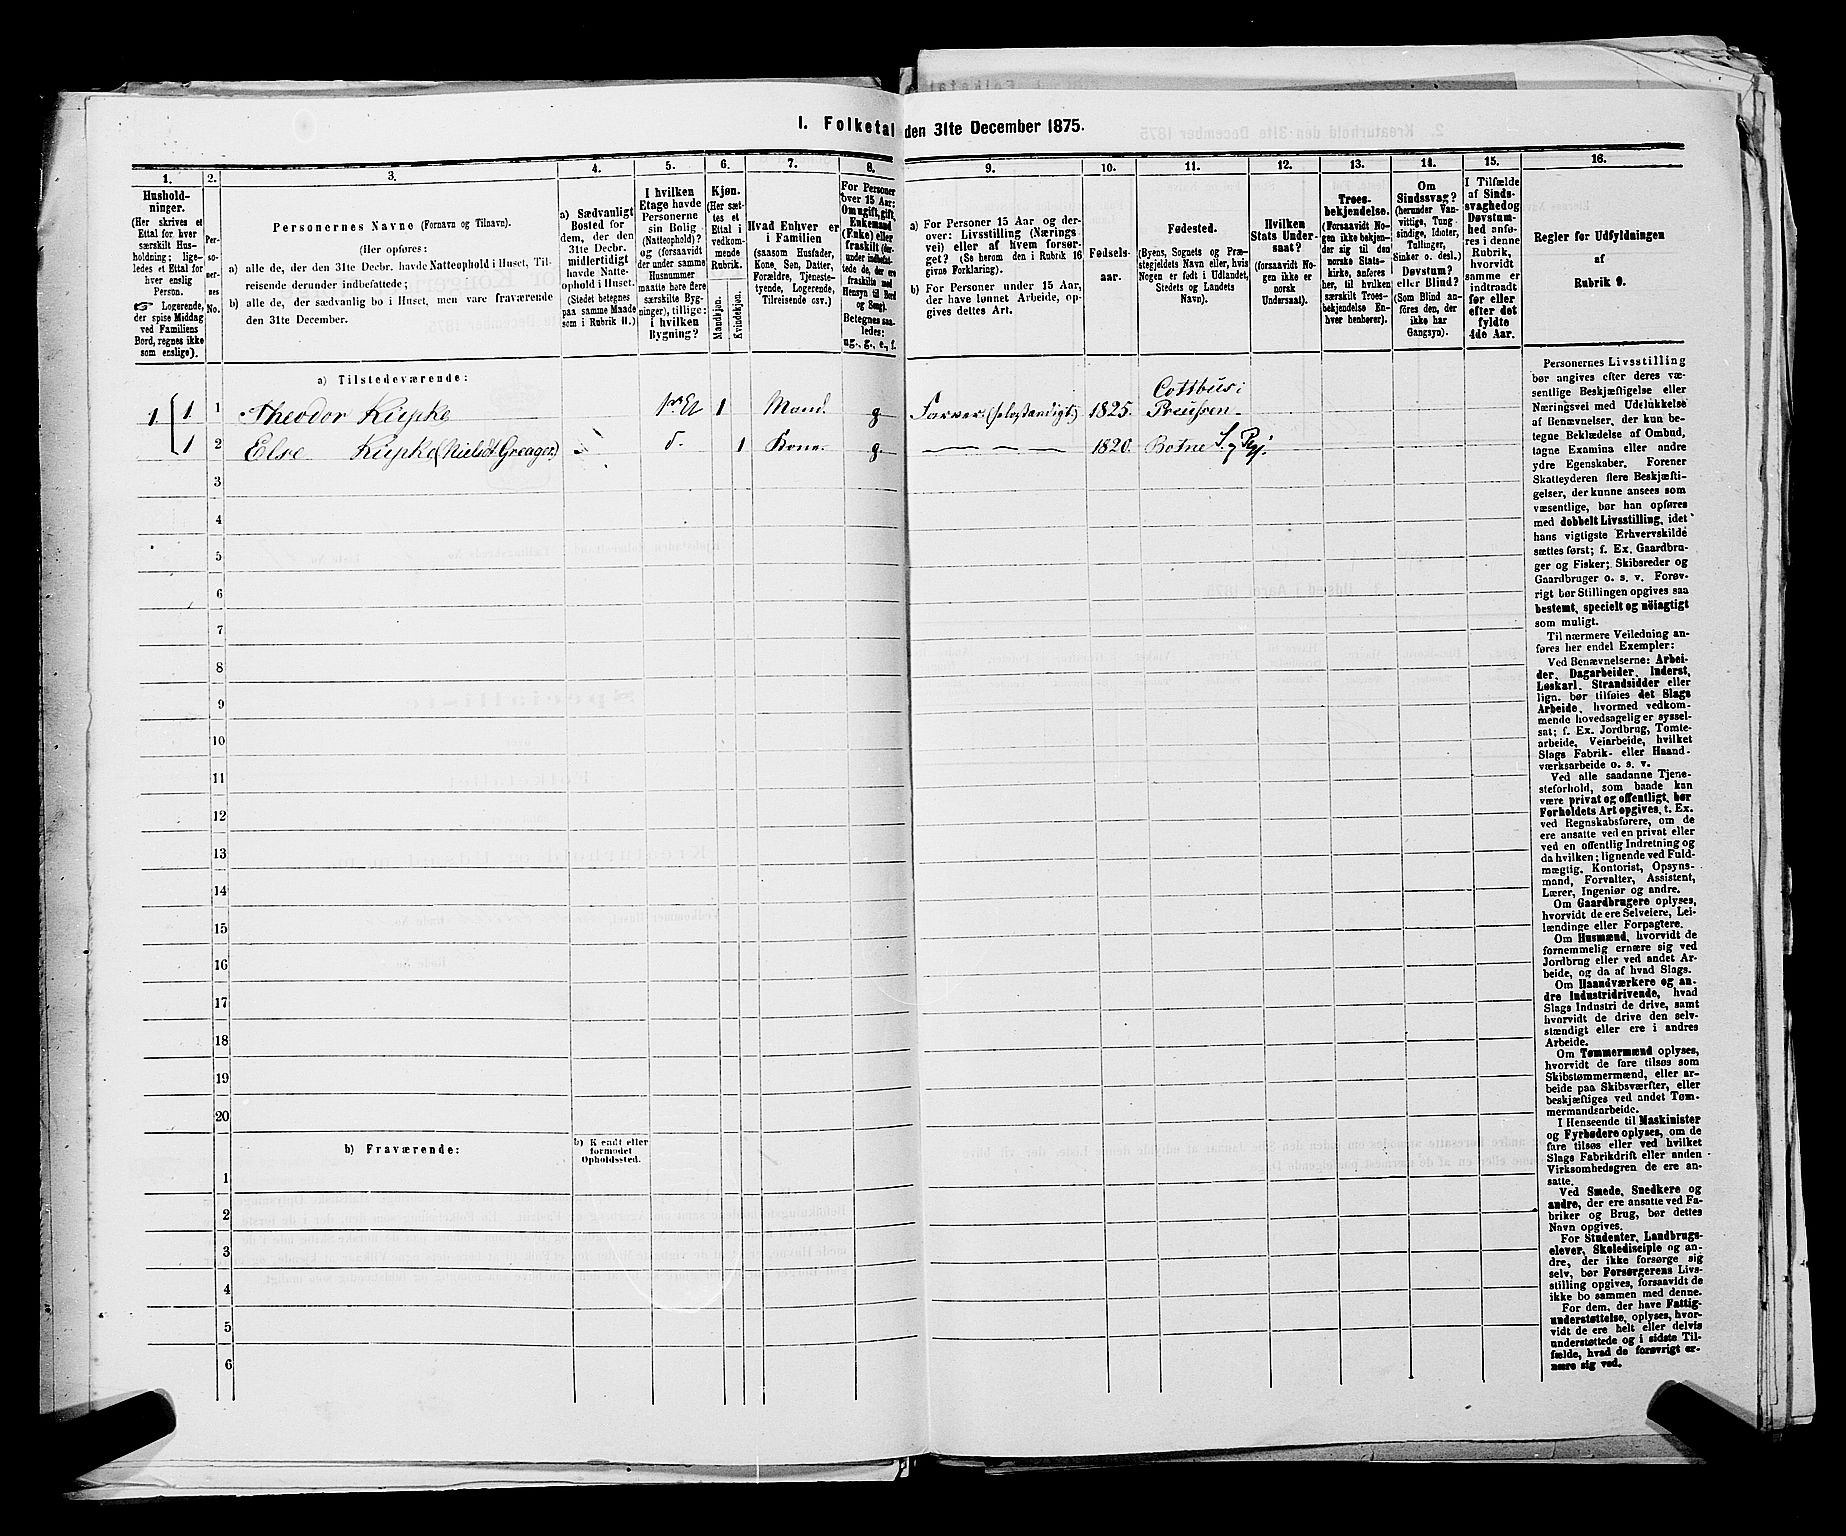 I. Folketal den 31te December 1875.
1.
2.
3.
4.
5.
6.
7.
8.
9.
10.
11.
12.
13.
14.
15.
16.
Hushold-
ninger.
(Her skrives et
Ettal for hver
særskilt Hus-
holdning; lige-
ledes et Ettal for
hver enslig
Person.
☞ Logerende,
der spise Middag
ved Familiens
Bord, regnes ikke
som enslige).
Per-
so-
ner-
nes
No.
Personernes Navne (Fornavn og Tilnavn).
(Her opføres:
a) alle de, der den 31te Decbr. havde Natteophold i Huset, Til-
reisende derunder indbefattede;
b) alle de, der sædvanlig bo i Huset, men vare fraværende
den 31te December.
a) Sædvanligt
Bosted for
dem, der den
31te Decbr.
midlertidigt
havde Natte-
ophold i Huset.
(Stedet betegnes
paa samme Maade
som i Rubrik 11.)
I hvilken
Etage havde
Personerne
sin Bolig
(Natteophold)?
og (forsaavidt
der under samme
Husnummer
maatte høre flere
særskilte Byg-
ninger), tillige:
i hvilken
Bygning?
Kjøn.
(Her sæt-
tes et
Ettal i
vedkom-
mende
Rubrik.
Mandkjøn.
Kvindekjøn.
Hvad Enhver er
i Familien
(saasom Husfader,
Kone, Søn, Datter,
Forældre, Tjeneste-
tyende, Logerende,
Tilreisende osv.)
For Personer
over 15 Aar:
Om ugift, gift,
Enkemand
(Enke) eller
fraskilt (der-
under indbefat-
tede de, der ere
fraskilte med
Hensyn til Bord
og Seng).
Betegnes saa-
ledes:
ug., g., e., f.
a) For Personer 15 Aar og der-
over: Livsstilling (Nærings-
vei) eller af hvem forsør-
get? (Se herom den i Rubrik 16
givne Forklaring).
b) For Personer under 15 Aar,
der have lønnet Arbeide, op-
gives dettes Art.
Fødsels-
aar.
Fødested.
(Byens, Sognets og Præ-
stegjeldets Navn eller, hvis
Nogen er født i Udlandet,
Stedets og Landets
Navn).
Hvilken
Stats Under-
saat?
(forsaavidt No-
gen ikke er
norsk
Undersaat).
Troes-
bekjendelse.
(Forsaavidt No-
gen ikke bekjen-
der sig til den
norske Stats-
kirke, anføres
her, til hvilken
særskilt Troes-
bekjendelse En-
hver henhører).
Om
Sindssvag?
(herunder Van-
vittige, Tung-
sindige, Idioter,
Tullinger,
Sinker o. desl.)
Døvstum?
eller Blind?
(Som Blind an-
føres den, der
ikke har
Gangsyn).
I Tilfælde
af Sinds-
svaghed og
Døvstum-
hed anfø-
res i denne
Rubrik,
hvorvidt
samme er
indtraadt
før eller
efter det
fyldte
4de Aar.
Regler for Udfyldningen
af
Rubrik 9.
a) Tilstedeværende:
1. 1 1 Theodor Kupke 1ste Et 1 Mand g Farver (selvstændigt) 1825. Cottbus i
Preussen
1 2 Else Kupke (Nielsd. Greager) d. 1 Kone g 1820. Botne S. og Pgj.
3
4
5
6
7
8
9
10
11
12
13
14
15
16
17
18
19
20
b) Fraværende:
b) Kjendt eller
formodet
Opholdssted.
1
2
3
4
5
6
Personernes Livsstilling
bør angives efter deres væ-
sentlige Beskjæftigelse eller
Næringsvei med Udelukkelse
af Benævnelser, der kun be-
tegne Beklædelse af Ombud,
tagne Examina eller andre
ydre Egenskaber. Forener
Skatteyderen flere Beskjæfti-
gelser, der kunne ansees som
væsentlige, bør han opføres
med dobbelt Livsstilling, idet
hans vigtigste Erhvervskilde
sættes først; f. Ex. Gaardbru-
ger og Fisker; Skibsreder og
Gaardbruger o. s. v. Forøv-
rigt bør Stillingen opgives saa
bestemt, specielt og nöiagtigt
som muligt.
Til nærmere Veiledning an-
føres her endel Exempler:
Ved Benævnelserne: Arbei-
der, Dagarbeider, Inderst,
Løskarl, Strandsidder eller
lign. bør tilføies det Slags
Arbeide, hvormed vedkom-
mende hovedsagelig er syssel-
sat; f. Ex. Jordbrug, Tomte-
arbeide, Veiarbeide, hvilket
Slags Fabrik- eller Haand-
værksarbeide o. s. v.
Ved alle saadanne Tjene-
steforhold, som baade kan
være privat og offentligt, bør
Forholdets Art opgives, t. Ex.
ved Regnskabsførere, om de
ere ansatte ved en privat eller
ved en offentlig Indretning og
da hvilken; lignende ved Fuld-
mægtig, Kontorist, Opsyns-
mand, Forvalter, Assistent,
Lærer, Ingeniør og andre.
Om Gaardbrugere oplyses,
hvorvidt de ere Selveiere, Lei-
lændinge eller Forpagtere.
Om Husmænd, hvorvidt de
fornemmelig ernære sig ved
Jordbrug eller ved andet Ar-
beide, og da af hvad Slags.
Om Haandværkere og an-
dre Industridrivende, hvad
Slags Industri de drive, samt
hvorvidt de drive den selv-
stændigt eller ere i andres
Arbeide.
Om Tømmermænd oplyses,
hvorvidt de fare tilsøs som
Skibstømmermænd, eller ar-
beide paa Skibsværfter, eller
beskjæftiges ved andet Tøm-
mermandsarbeide.
I Henseende til Maskinister
og Fyrbødere oplyses, om de
fare tilsøs eller ved hvilket
Slags Fabrikdrift eller anden
Virksomhedsgren de ere an-
satte.
Ved Smede, Snedkere og
andre, der ere ansatte ved Fa-
briker og Brug, bør dettes
Navn opgives.
For Studenter, Landbrugs-
elever, Skoledisciple og an-
dre, der ikke forsørge sig
selv, bør Forsørgerens Livs-
stilling opgives, forsaavidt de
ikke bo sammen med denne.
For dem, der have Fattig-
understøttelse, oplyses, hvor-
vidt de ere helt eller delvis
understøttede og i sidste Til-
fælde, hvad de forøvrigt er-
nære sig ved.